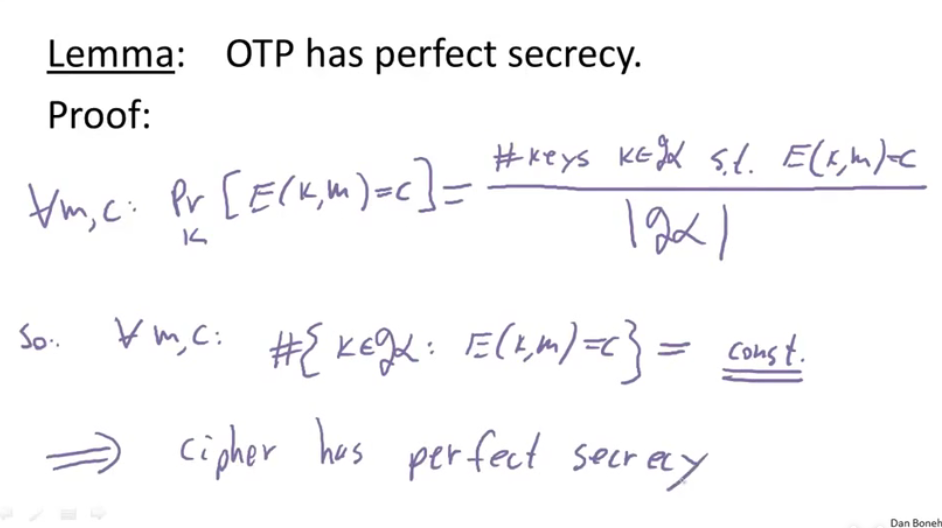 Lemma: OTP has perfect secrecy.
Proof:
∀m,c: Pr_K [E(k,m)=c] = (#keys k∈𝒦 s.t. E(k,m)=c) / |𝒦|
So: ∀m,c: #{k∈𝒦: E(k,m)=c} = const.
⟹ cipher has perfect secrecy
Dan Boneh